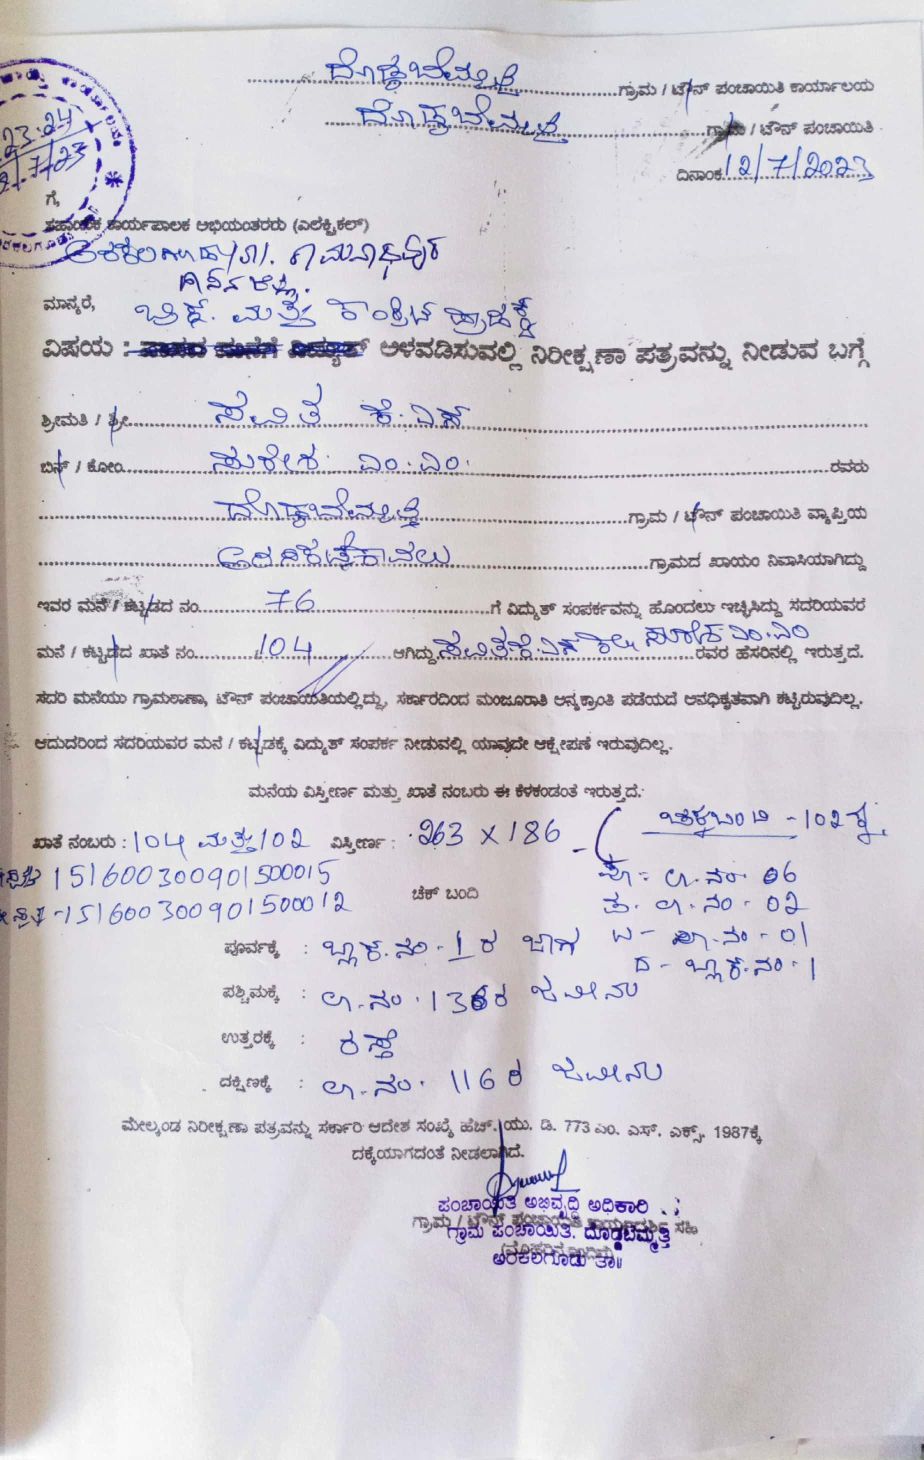 ದೊಡ್ಡಬೆಮ್ಮತ್ತಿ ಗ್ರಾಮ / ಟೌನ್ ಪಂಚಾಯಿತಿ ಕಾರ್ಯಾಲಯ
ದೊಡ್ಡಬೆಮ್ಮತ್ತಿ ಗ್ರಾಮ / ಟೌನ್ ಪಂಚಾಯಿತಿ
ದಿನಾಂಕ 12/7/2023
23-24
ಗೆ,
ಸಹಾಯಕ ಕಾರ್ಯಪಾಲಕ ಅಭಿಯಂತರರು (ಎಲೆಕ್ಟ್ರಿಕಲ್)
ಮಾನ್ಯರೆ,
ಮತ್ತು
ವಿಷಯ : ಅಳವಡಿಸುವಲ್ಲಿ ನಿರೀಕ್ಷಣಾ ಪತ್ರವನ್ನು ನೀಡುವ ಬಗ್ಗೆ
ಶ್ರೀಮತಿ / ಶ್ರೀ ಸವಿತ ಕೆ.ಎಸ್
ಬಿನ್ / ಕೋಂ ಸುರೇಶ ಎಂ.ಎಂ. ರವರು
ದೊಡ್ಡಬೆಮ್ಮತ್ತಿ ಗ್ರಾಮ / ಟೌನ್ ಪಂಚಾಯಿತಿ ವ್ಯಾಪ್ತಿಯ
ಗ್ರಾಮದ ಖಾಯಂ ನಿವಾಸಿಯಾಗಿದ್ದು
ಇವರ ಮನೆ / ಕಟ್ಟಡದ ನಂ. 76 ಗೆ ವಿದ್ಯುತ್ ಸಂಪರ್ಕವನ್ನು ಹೊಂದಲು ಇಚ್ಛಿಸಿದ್ದು ಸದರಿಯವರ
ಮನೆ / ಕಟ್ಟಡದ ಖಾತೆ ನಂ. 104 ಆಗಿದ್ದು, ಸವಿತ ಕೆ.ಎಸ್ ಕೋಂ ಸುರೇಶ ಎಂ.ಎಂ ರವರ ಹೆಸರಿನಲ್ಲಿ ಇರುತ್ತದೆ.
ಸದರಿ ಮನೆಯು ಗ್ರಾಮಠಾಣಾ, ಟೌನ್ ಪಂಚಾಯಿತಿಯಲ್ಲಿದ್ದು, ಸರ್ಕಾರದಿಂದ ಮಂಜೂರಾತಿ ಅನ್ಯಕ್ರಾಂತಿ ಪಡೆಯದೆ ಅನಧಿಕೃತವಾಗಿ ಕಟ್ಟಿರುವುದಿಲ್ಲ.
ಆದುದರಿಂದ ಸದರಿಯವರ ಮನೆ / ಕಟ್ಟಡಕ್ಕೆ ವಿದ್ಯುತ್ ಸಂಪರ್ಕ ನೀಡುವಲ್ಲಿ ಯಾವುದೇ ಆಕ್ಷೇಪಣೆ ಇರುವುದಿಲ್ಲ.
ಮನೆಯ ವಿಸ್ತೀರ್ಣ ಮತ್ತು ಖಾತೆ ನಂಬರು ಈ ಕೆಳಕಂಡಂತೆ ಇರುತ್ತದೆ.
ಖಾತೆ ನಂಬರು : 104 ಮತ್ತು 102 ವಿಸ್ತೀರ್ಣ : 263 X 186 - ( ಚಕ್ಕುಬಂದಿ - 102 ಕ್ಕೆ
151600300901500015 ಪೂ - ಆ.ನಂ. 06
- 151600300901500012 ಚೆಕ್ ಬಂದಿ ಪ. ಆ.ನಂ - 02
ಪೂರ್ವಕ್ಕೆ : ಬ್ಲಾಕ್.ನಂ. 1 ರ ಜಾಗ ಉ - ಆ.ನಂ - 01
ದ - ಬ್ಲಾಕ್.ನಂ. 1
ಪಶ್ಚಿಮಕ್ಕೆ : ಆ.ನಂ. 136ರ ಜಮೀನು
ಉತ್ತರಕ್ಕೆ : ರಸ್ತೆ
ದಕ್ಷಿಣಕ್ಕೆ : ಆ.ನಂ. 116 ರ ಜಮೀನು
ಮೇಲ್ಕಂಡ ನಿರೀಕ್ಷಣಾ ಪತ್ರವನ್ನು ಸರ್ಕಾರಿ ಆದೇಶ ಸಂಖ್ಯೆ ಹೆಚ್. ಯು. ಡಿ. 773 ಎಂ. ಎಸ್. ಎಕ್ಸ್. 1987ಕ್ಕೆ
ದಕ್ಕೆಯಾಗದಂತೆ ನೀಡಲಾಗಿದೆ.
ಪಂಚಾಯಿತಿ ಅಭಿವೃದ್ಧಿ ಅಧಿಕಾರಿ
ಗ್ರಾಮ / ಟೌನ್ ಪಂಚಾಯಿತಿ ಕಾರ್ಯದರ್ಶಿ ಸಹಿ
ಗ್ರಾಮ ಪಂಚಾಯಿತಿ. ದೊಡ್ಡಬೆಮ್ಮತ್ತಿ
ಅರಕಲಗೂಡು ತಾ॥